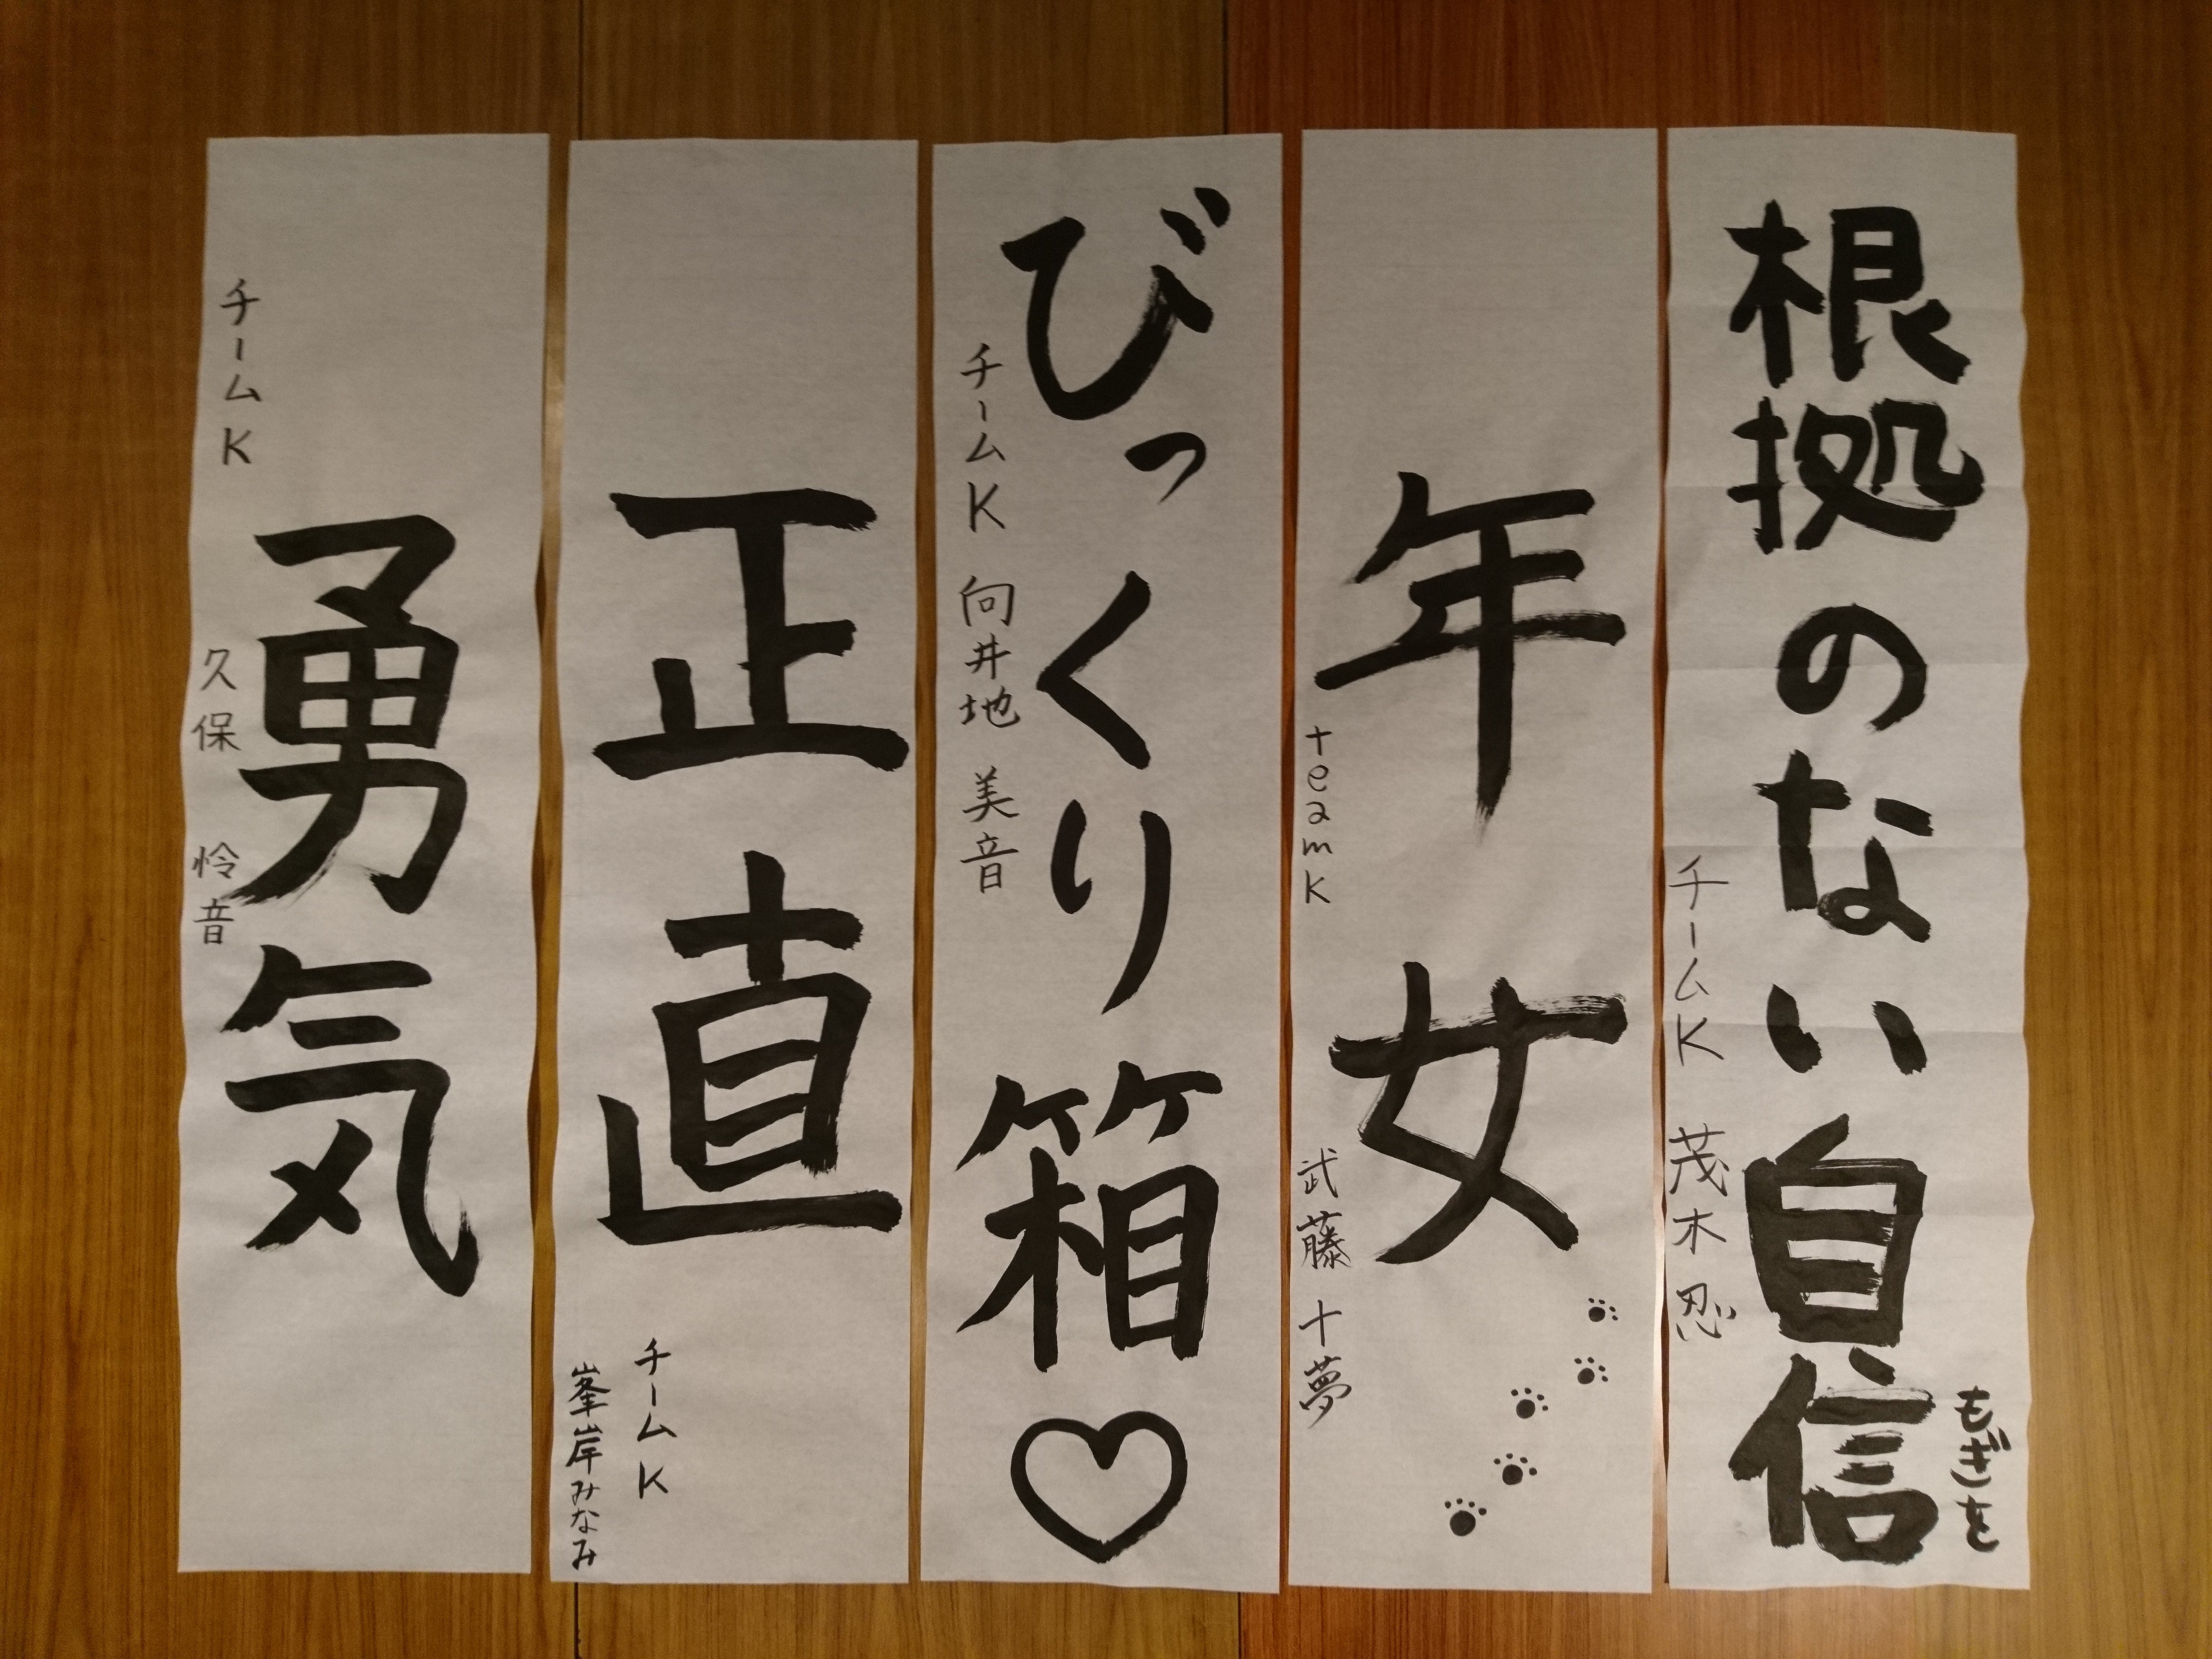 根拠のない自信
もぎを
チームK 茂木忍
年女
teamK 武藤十夢
びっくり箱♡
チームK 向井地美音
正直
チームK
峯岸みなみ
勇気
チームK 久保怜音